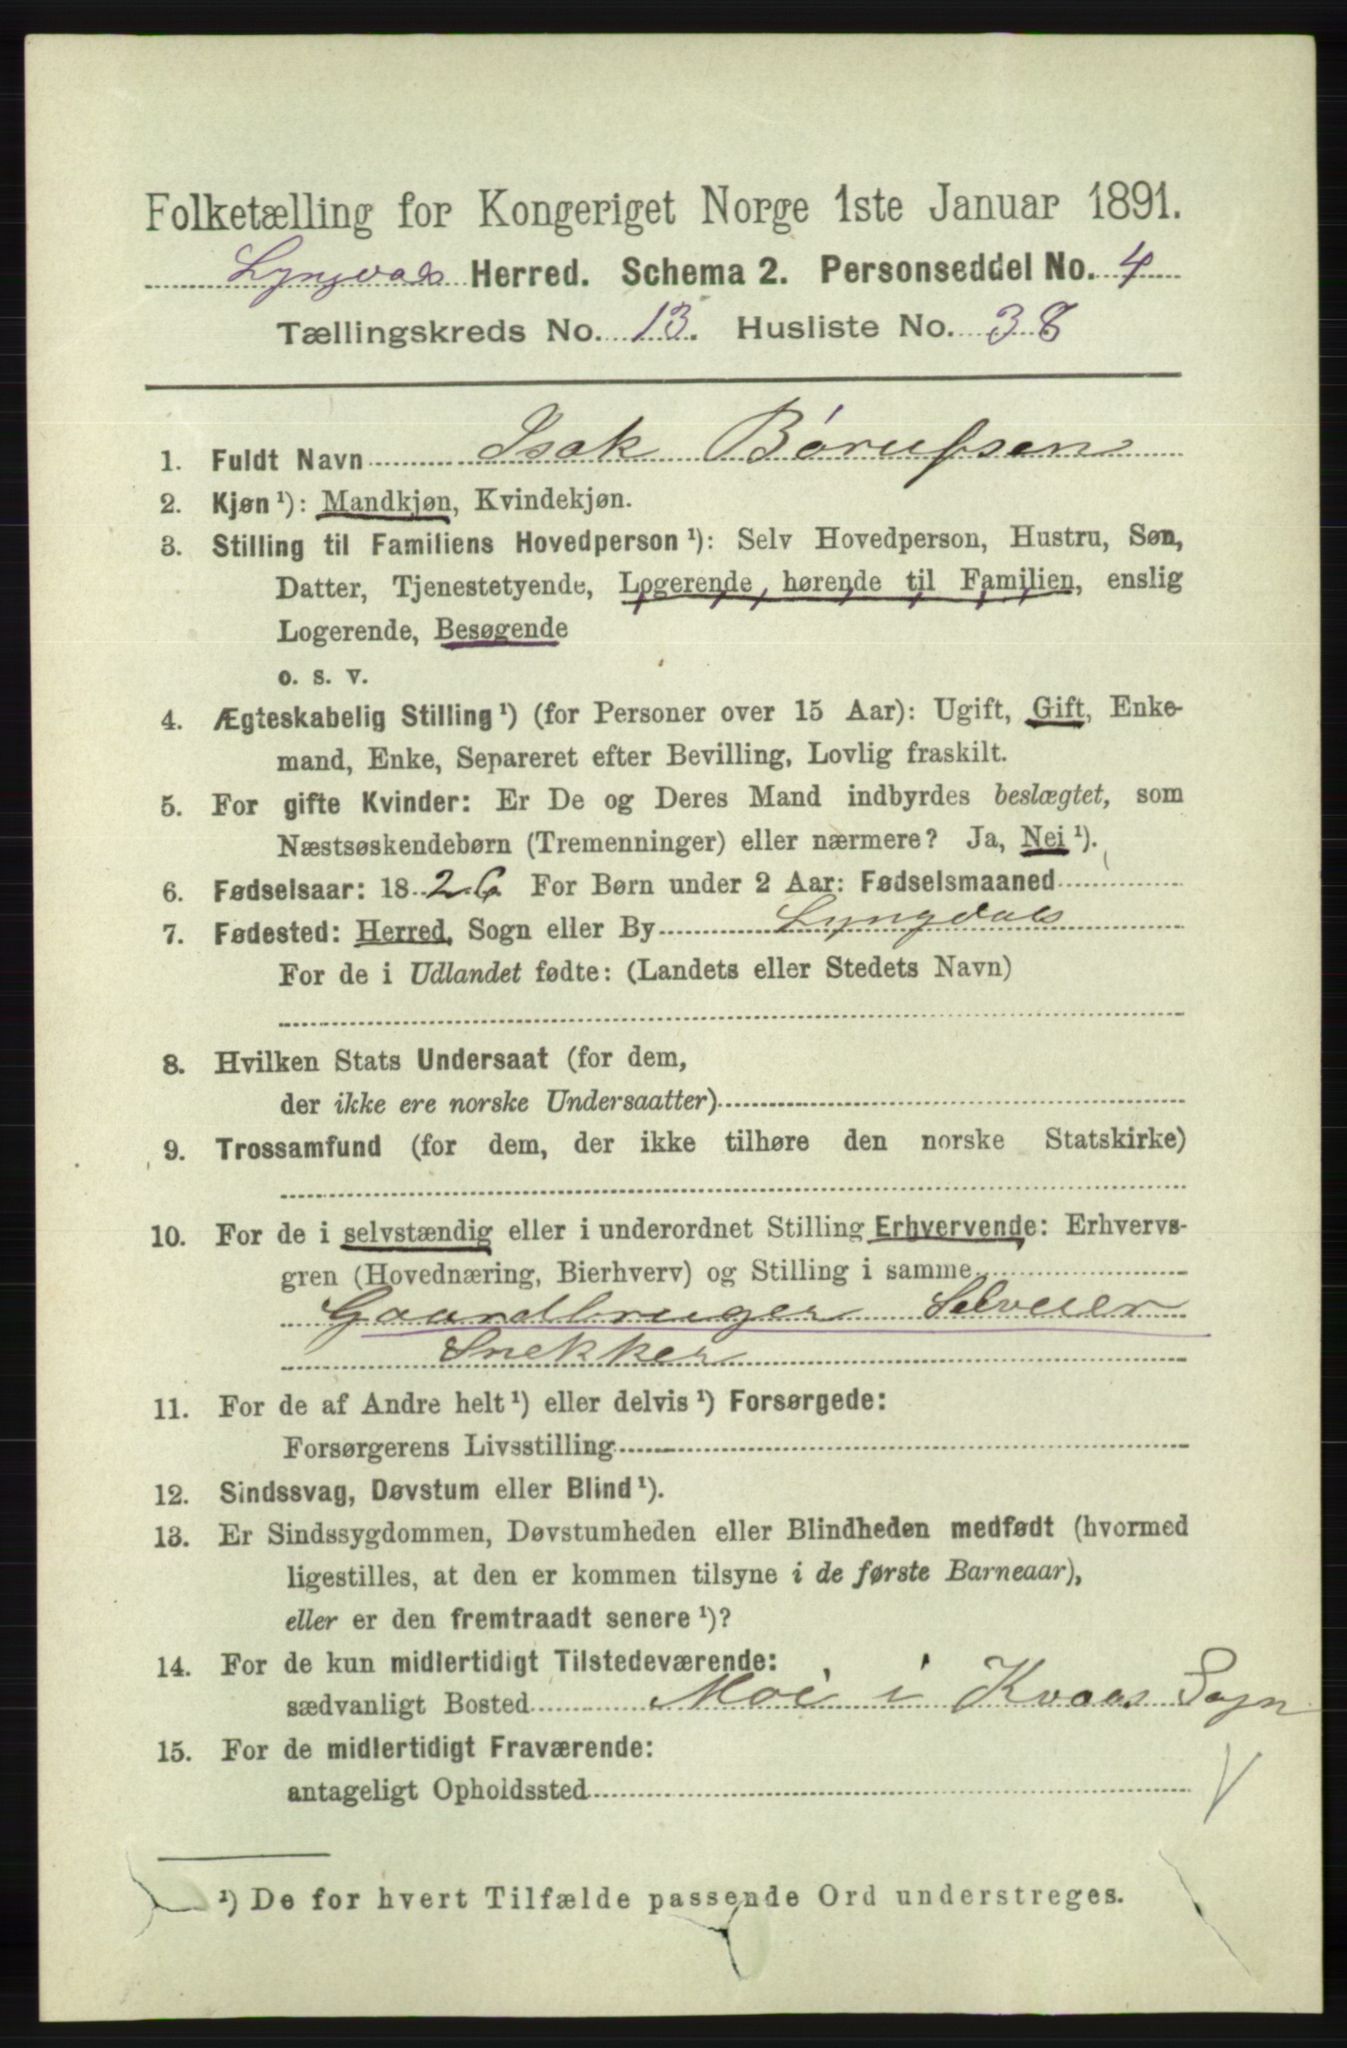 Folketælling for Kongeriget Norge 1ste Januar 1891.
Lyngdals Herred. Schema 2. Personseddel No. 4
Tællingskreds No. 13. Husliste No. 38
1. Fuldt Navn Isak Børufsen
2. Kjøn ¹): Mandkjøn, Kvindekjøn.
3. Stilling til Familiens Hovedperson ¹): Selv Hovedperson, Hustru, Søn,
Datter, Tjenestetyende, Logerende, hørende til Familien, enslig
Logerende, Besøgende
o. s. v.
4. Ægteskabelig Stilling ¹) (for Personer over 15 Aar): Ugift, Gift, Enke-
mand, Enke, Separeret efter Bevilling, Lovlig fraskilt.
5. For gifte Kvinder: Er De og Deres Mand indbyrdes beslægtet, som
Næstsøskendebørn (Tremenninger) eller nærmere? Ja, Nei ¹).
6. Fødselsaar: 1826 For Børn under 2 Aar: Fødselsmaaned
7. Fødested: Herred, Sogn eller By Lyngdals
For de i Udlandet fødte: (Landets eller Stedets Navn)
8. Hvilken Stats Undersaat (for dem,
der ikke ere norske Undersaatter)
9. Trossamfund (for dem, der ikke tilhøre den norske Statskirke)
10. For de i selvstændig eller i underordnet Stilling Erhvervende: Erhvervs-
gren (Hovednæring, Bierhverv) og Stilling i samme
Gaardbruger Selveier
Snekker
11. For de af Andre helt ¹) eller delvis ¹) Forsørgede:
Forsørgerens Livsstilling
12. Sindssvag, Døvstum eller Blind ¹).
13. Er Sindssygdommen, Døvstumheden eller Blindheden medfødt (hvormed
ligestilles, at den er kommen tilsyne i de første Barneaar),
eller er den fremtraadt senere ¹)?
14. For de kun midlertidigt Tilstedeværende:
sædvanligt Bosted Moi i Kvaas Sogn
15. For de midlertidigt Fraværende:
antageligt Opholdssted
¹) De for hvert Tilfælde passende Ord understreges.